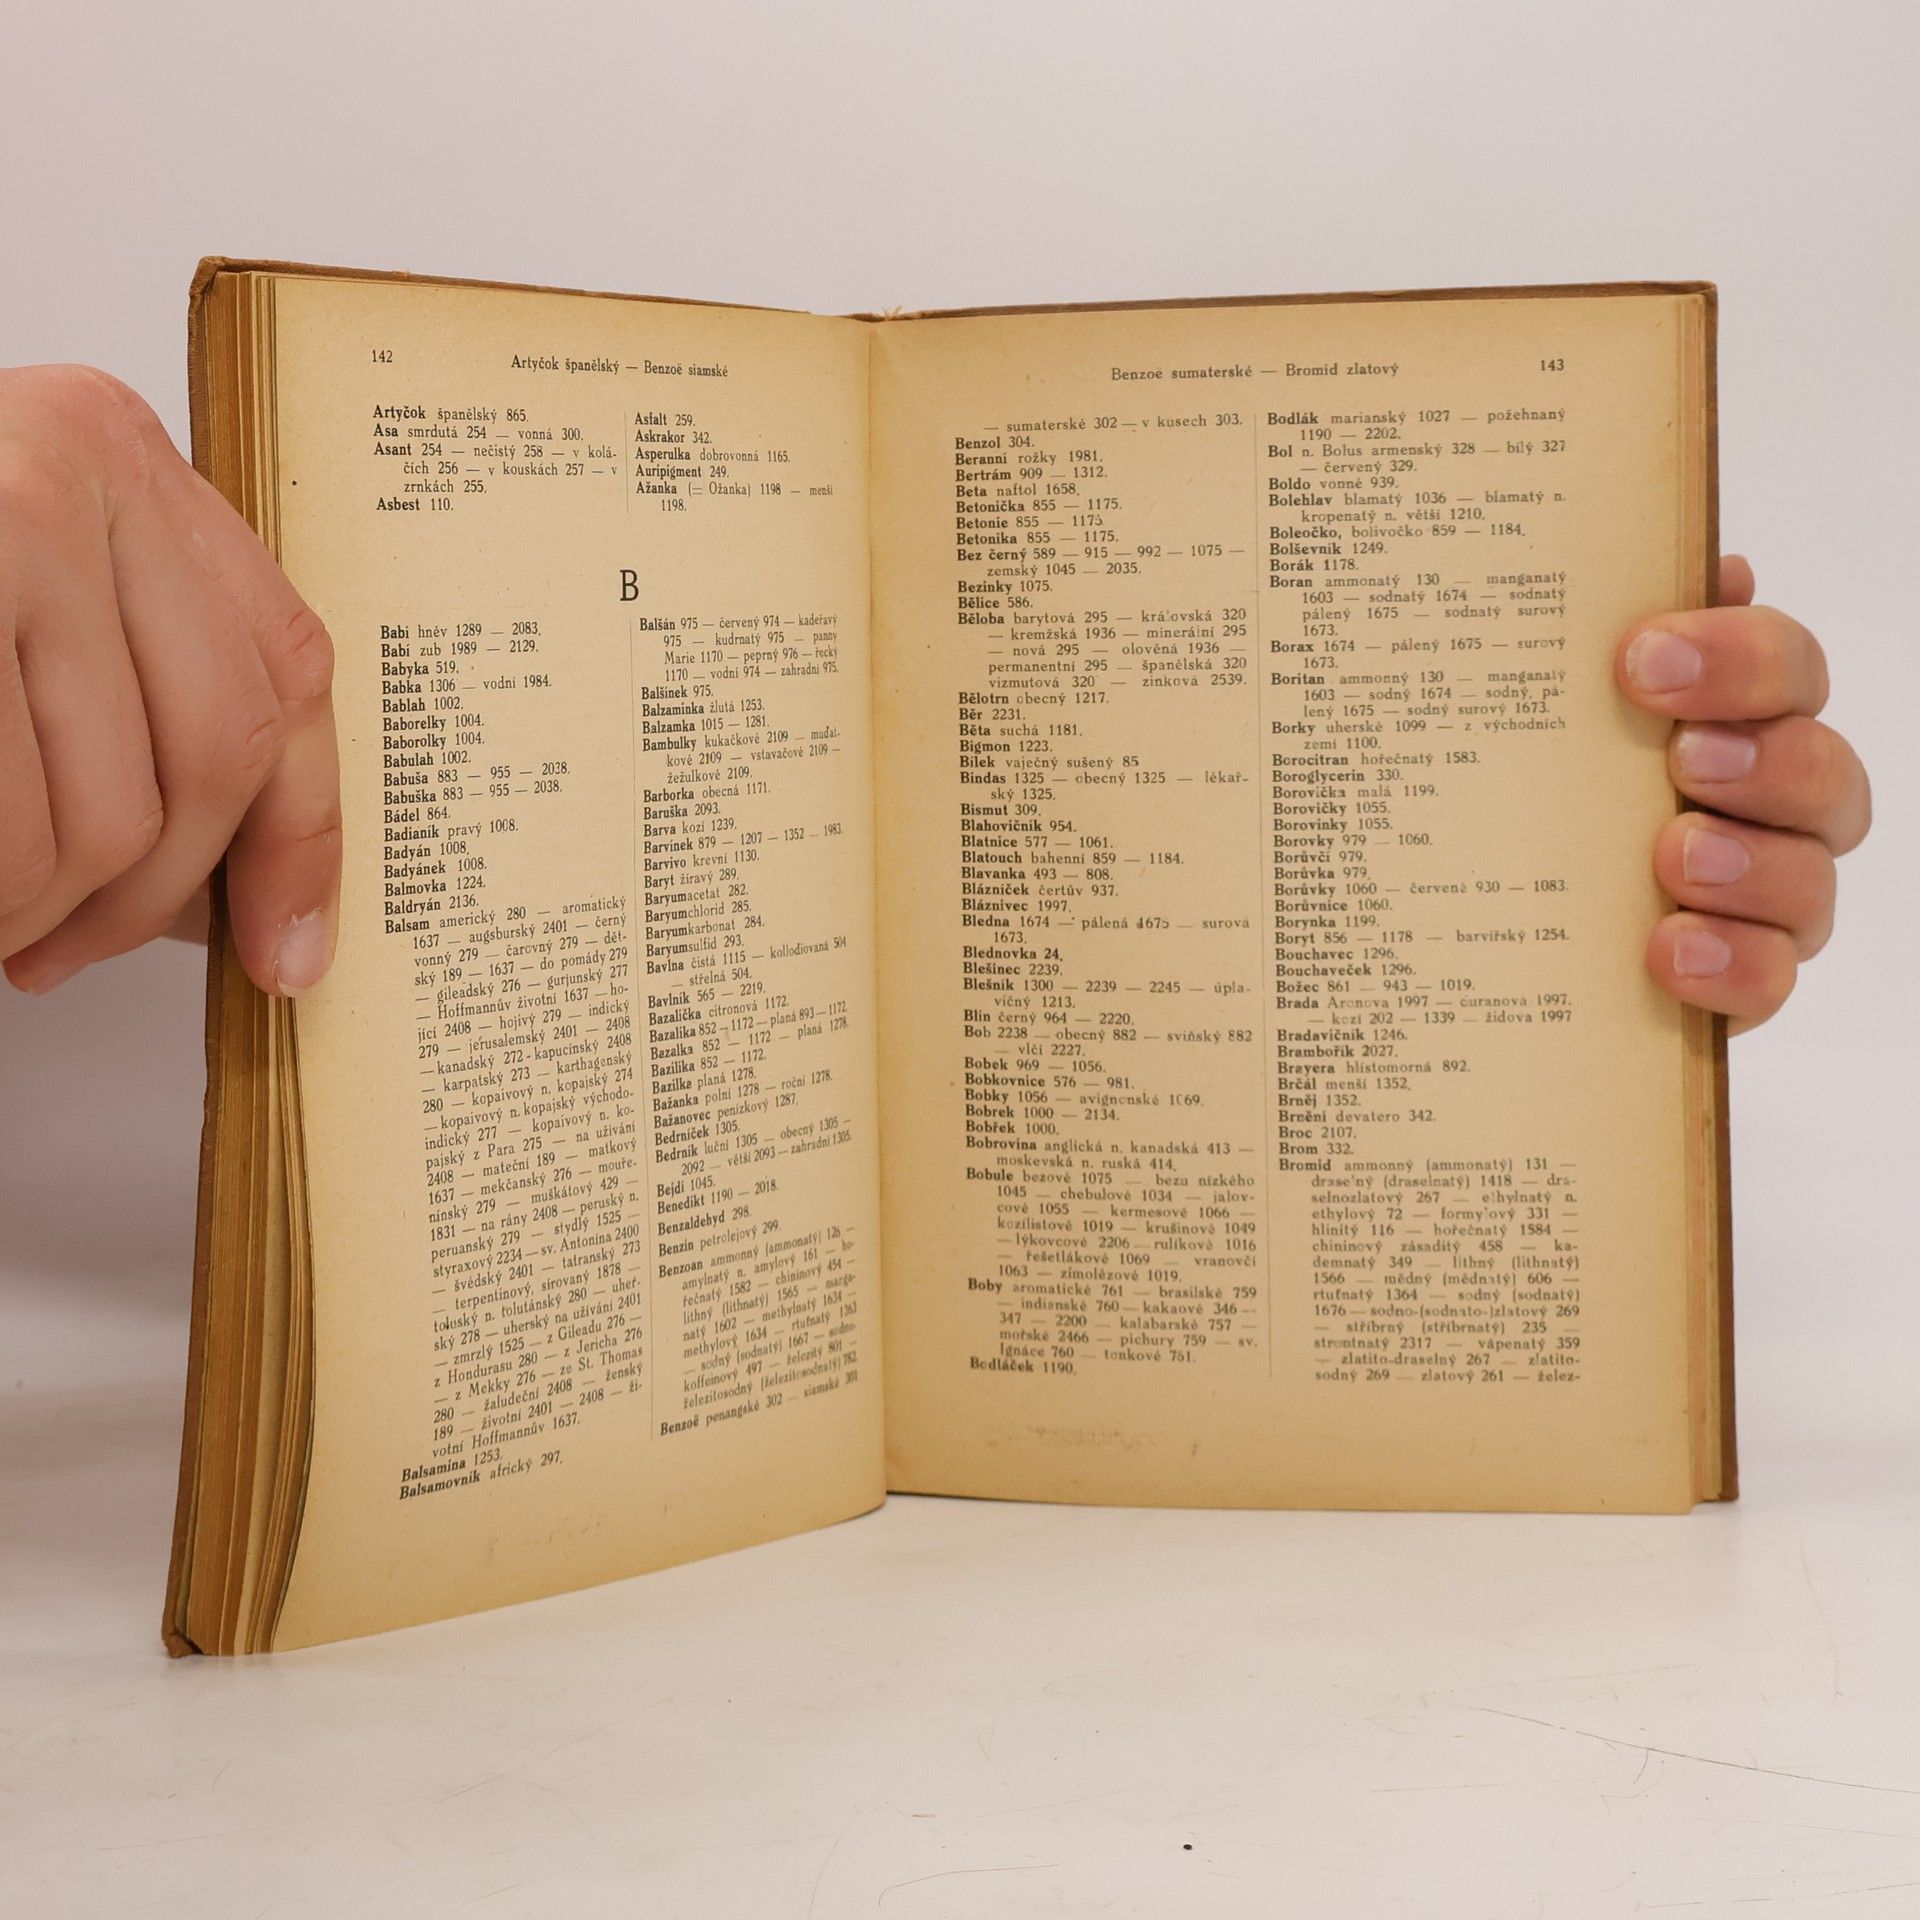 142
Artyčok španělský — Benzoë siamské
Artyčok španělský 865.
Asa smrdutá 254 — vonná 300.
Asant 254 — nečistý 258 — v kolá-
čích 256 — v kouskách 257 — v
zrnkách 255.
Asbest 110.
Asfalt 259.
Askrakor 342.
Asperulka dobrovonná 1165.
Auripigment 249.
Ažanka (= Ožanka) 1198 — menší
1198.
B
Babí hněv 1289 — 2083.
Babí zub 1989 — 2129.
Babyka 519.
Babka 1306 — vodní 1984.
Bablah 1002.
Baborelky 1004.
Baborolky 1004.
Babulah 1002.
Babuša 883 — 955 — 2038.
Babuška 883 — 955 — 2038.
Bádel 864.
Badianík pravý 1008.
Badyán 1008.
Badyánek 1008.
Balmovka 1224.
Baldryán 2136.
Balsam americký 280 — aromatický
1637 — augsburský 2401 — černý
vonný 279 — čarovný 279 — dět-
ský 189 — 1637 — do pomády 279
— gileadský 276 — gurjunský 277
— Hoffmannův životní 1637 — ho-
jící 2408 — hojivý 279 — indický
279 — jerusalemský 2401 — 2408
— kanadský 272 - kapucínský 2408
— karpatský 273 — karthagenský
280 — kopaivový n. kopajský 274
— kopaivový n. kopajský východo-
indický 277 — kopaivový n. ko-
pajský z Para 275 — na užívání
2408 — mateční 189 — matkový
1637 — mekčanský 276 — mouře-
nínský 279 — muškátový 429 —
1831 — na rány 2408 — peruský n.
peruanský 279 — stydlý 1525 —
styraxový 2234 — sv. Antonína 2400
— švédský 2401 — tatranský 273
— terpentinový, sírovaný 1878 —
toluský n. tolutánský 280 — uher-
ský 278 — uherský na užívání 2401
— zmrzlý 1525 — z Gileadu 276 —
z Hondurasu 280 — z Jericha 276
— z Mekky 276 — ze St. Thomas
280 — žaludeční 2408 — ženský
189 — životní 2401 — 2408 — ži-
votní Hoffmannův 1637.
Balsamína 1253.
Balsamovník africký 297.
Balšán 975 — červený 974 — kadeřavý
975 — kudrnatý 975 — panny
Marie 1170 — peprný 976 — řecký
1170 — vodní 974 — zahradní 975.
Balšínek 975.
Balzamínka žlutá 1253.
Balzamka 1015 — 1281.
Bambulky kukačkové 2109 — mudal-
kové 2109 — vstavačové 2109 —
žežulkové 2109.
Barborka obecná 1171.
Baruška 2093.
Barva kozí 1239.
Barvínek 879 — 1207 — 1352 — 1983.
Barvivo krevní 1130.
Baryt žíravý 289.
Baryumacetat 282.
Baryumchlorid 285.
Baryumkarbonat 284.
Baryumsulfid 293.
Bavlna čistá 1115 — kollodiovaná 504
— střelná 504.
Bavlník 565 — 2219.
Bazalička citronová 1172.
Bazalika 852 — 1172 — planá 893 — 1172.
Bazalka 852 — 1172 — planá 1278.
Bazilika 852 — 1172.
Bazilka planá 1278.
Bažanka polní 1278 — roční 1278.
Bažanovec penízkový 1287.
Bedrníček 1305.
Bedrník luční 1305 — obecný 1305 —
2092 — větší 2093 — zahradní 1305.
Bejdí 1045.
Benedikt 1190 — 2018.
Benzaldehyd 298.
Benzin petrolejový 299.
Benzoan ammonný (ammonatý) 126 —
amylnatý n. amylový 161 — ho-
řečnatý 1582 — chininový 454 —
lithný (lithnatý) 1565 — manga-
natý 1602 — methylnatý 1634 —
methylový 1634 — rtuťnatý 1363
— sodný (sodnatý) 1667 — sodno-
koffeinový 497 — železitý 801 —
železitosodný (železitosodnatý) 782.
Benzoë penangské 302 — siamské 301
Benzoë sumaterské — Bromid zlatový
143
— sumaterské 302 — v kusech 303.
Benzol 304.
Beranní rožky 1981.
Bertrám 909 — 1312.
Beta naftol 1658.
Betonička 855 — 1175.
Betonie 855 — 1175
Betonika 855 — 1175.
Bez černý 589 — 915 — 992 — 1075 —
zemský 1045 — 2035.
Bezinky 1075.
Bělice 586.
Běloba barytová 295 — královská 320
— kremžská 1936 — minerální 295
— nová 295 — olověná 1936 —
permanentní 295 — španělská 320
vizmutová 320 — zinková 2539.
Bělotrn obecný 1217.
Běr 2231.
Běta suchá 1181.
Bigmon 1223.
Bílek vaječný sušený 85
Bindas 1325 — obecný 1325 — lékař-
ský 1325.
Bismut 309.
Blahovičník 954.
Blatnice 577 — 1061.
Blatouch bahenní 859 — 1184.
Blavanka 493 — 808.
Blázníček čertův 937.
Bláznivec 1997.
Bledna 1674 — pálená 1675 — surová
1673.
Blednovka 24.
Blešinec 2239.
Blešník 1300 — 2239 — 2245 — úpla-
vičný 1213.
Blín černý 964 — 2220.
Bob 2238 — obecný 882 — sviňský 882
— vlčí 2227.
Bobek 969 — 1056.
Bobkovnice 576 — 981.
Bobky 1056 — avignonské 1069.
Bobrek 1000 — 2134.
Bobřek 1000.
Bobrovina anglická n. kanadská 413 —
moskevská n. ruská 414.
Bobule bezové 1075 — bezu nízkého
1045 — chebulové 1034 — jalov-
cové 1055 — kermesové 1066 —
kozílistové 1019 — krušinové 1049
— lýkovcové 2206 — rulíkové 1016
— řešetlákové 1069 — vranovčí
1063 — zimolézové 1019.
Boby aromatické 761 — brasilské 759
— indianské 760 — kakaové 346 —
347 — 2200 — kalabarské 757 —
mořské 2466 — pichury 759 — sv.
Ignáce 760 — tonkové 761.
Bodláček 1190.
Bodlák marianský 1027 — požehnaný
1190 — 2202.
Bol n. Bolus armenský 328 — bílý 327
— červený 329.
Boldo vonné 939.
Bolehlav blamatý 1036 — blamatý n.
kropenatý n. větší 1210.
Boleočko, bolivočko 859 — 1184.
Bolševník 1249.
Borák 1178.
Boran ammonatý 130 — manganatý
1603 — sodnatý 1674 — sodnatý
pálený 1675 — sodnatý surový
1673.
Borax 1674 — pálený 1675 — surový
1673.
Boritan ammonný 130 — manganatý
1603 — sodný 1674 — sodný, pá-
lený 1675 — sodný surový 1673.
Borky uherské 1099 — z východních
zemí 1100.
Borocitran hořečnatý 1583.
Boroglycerin 330.
Borovička malá 1199.
Borovičky 1055.
Borovinky 1055.
Borovky 979 — 1060.
Borůvčí 979.
Borůvka 979.
Borůvky 1060 — červené 930 — 1083.
Borůvnice 1060.
Borynka 1199.
Boryt 856 — 1178 — barvířský 1254.
Bouchavec 1296.
Bouchaveček 1296.
Božec 861 — 943 — 1019.
Brada Aronova 1997 — curanova 1997.
— kozí 202 — 1339 — židova 1997
Bradavičník 1246.
Brambořík 2027.
Brayera hlístomorná 892.
Brčál menší 1352.
Brněj 1352.
Brnění devatero 342.
Broc 2107.
Brom 332.
Bromid ammonný (ammonatý) 131 —
draselný (draselnatý) 1418 — dra-
selnozlatový 267 — ethylnatý n.
ethylový 72 — formylový 331 —
hlinitý 116 — hořečnatý 1584 —
chininový zásaditý 458 — ka-
demnatý 349 — lithný (lithnatý)
1566 — mědný (mědnatý) 606 —
rtuťnatý 1364 — sodný (sodnatý)
1676 — sodno-(sodnato-)zlatový 269
— stříbrný (stříbrnatý) 235 —
strontnatý 2317 — vápenatý 359
— zlatito-draselný 267 — zlatito-
sodný 269 — zlatový 261 — želez-